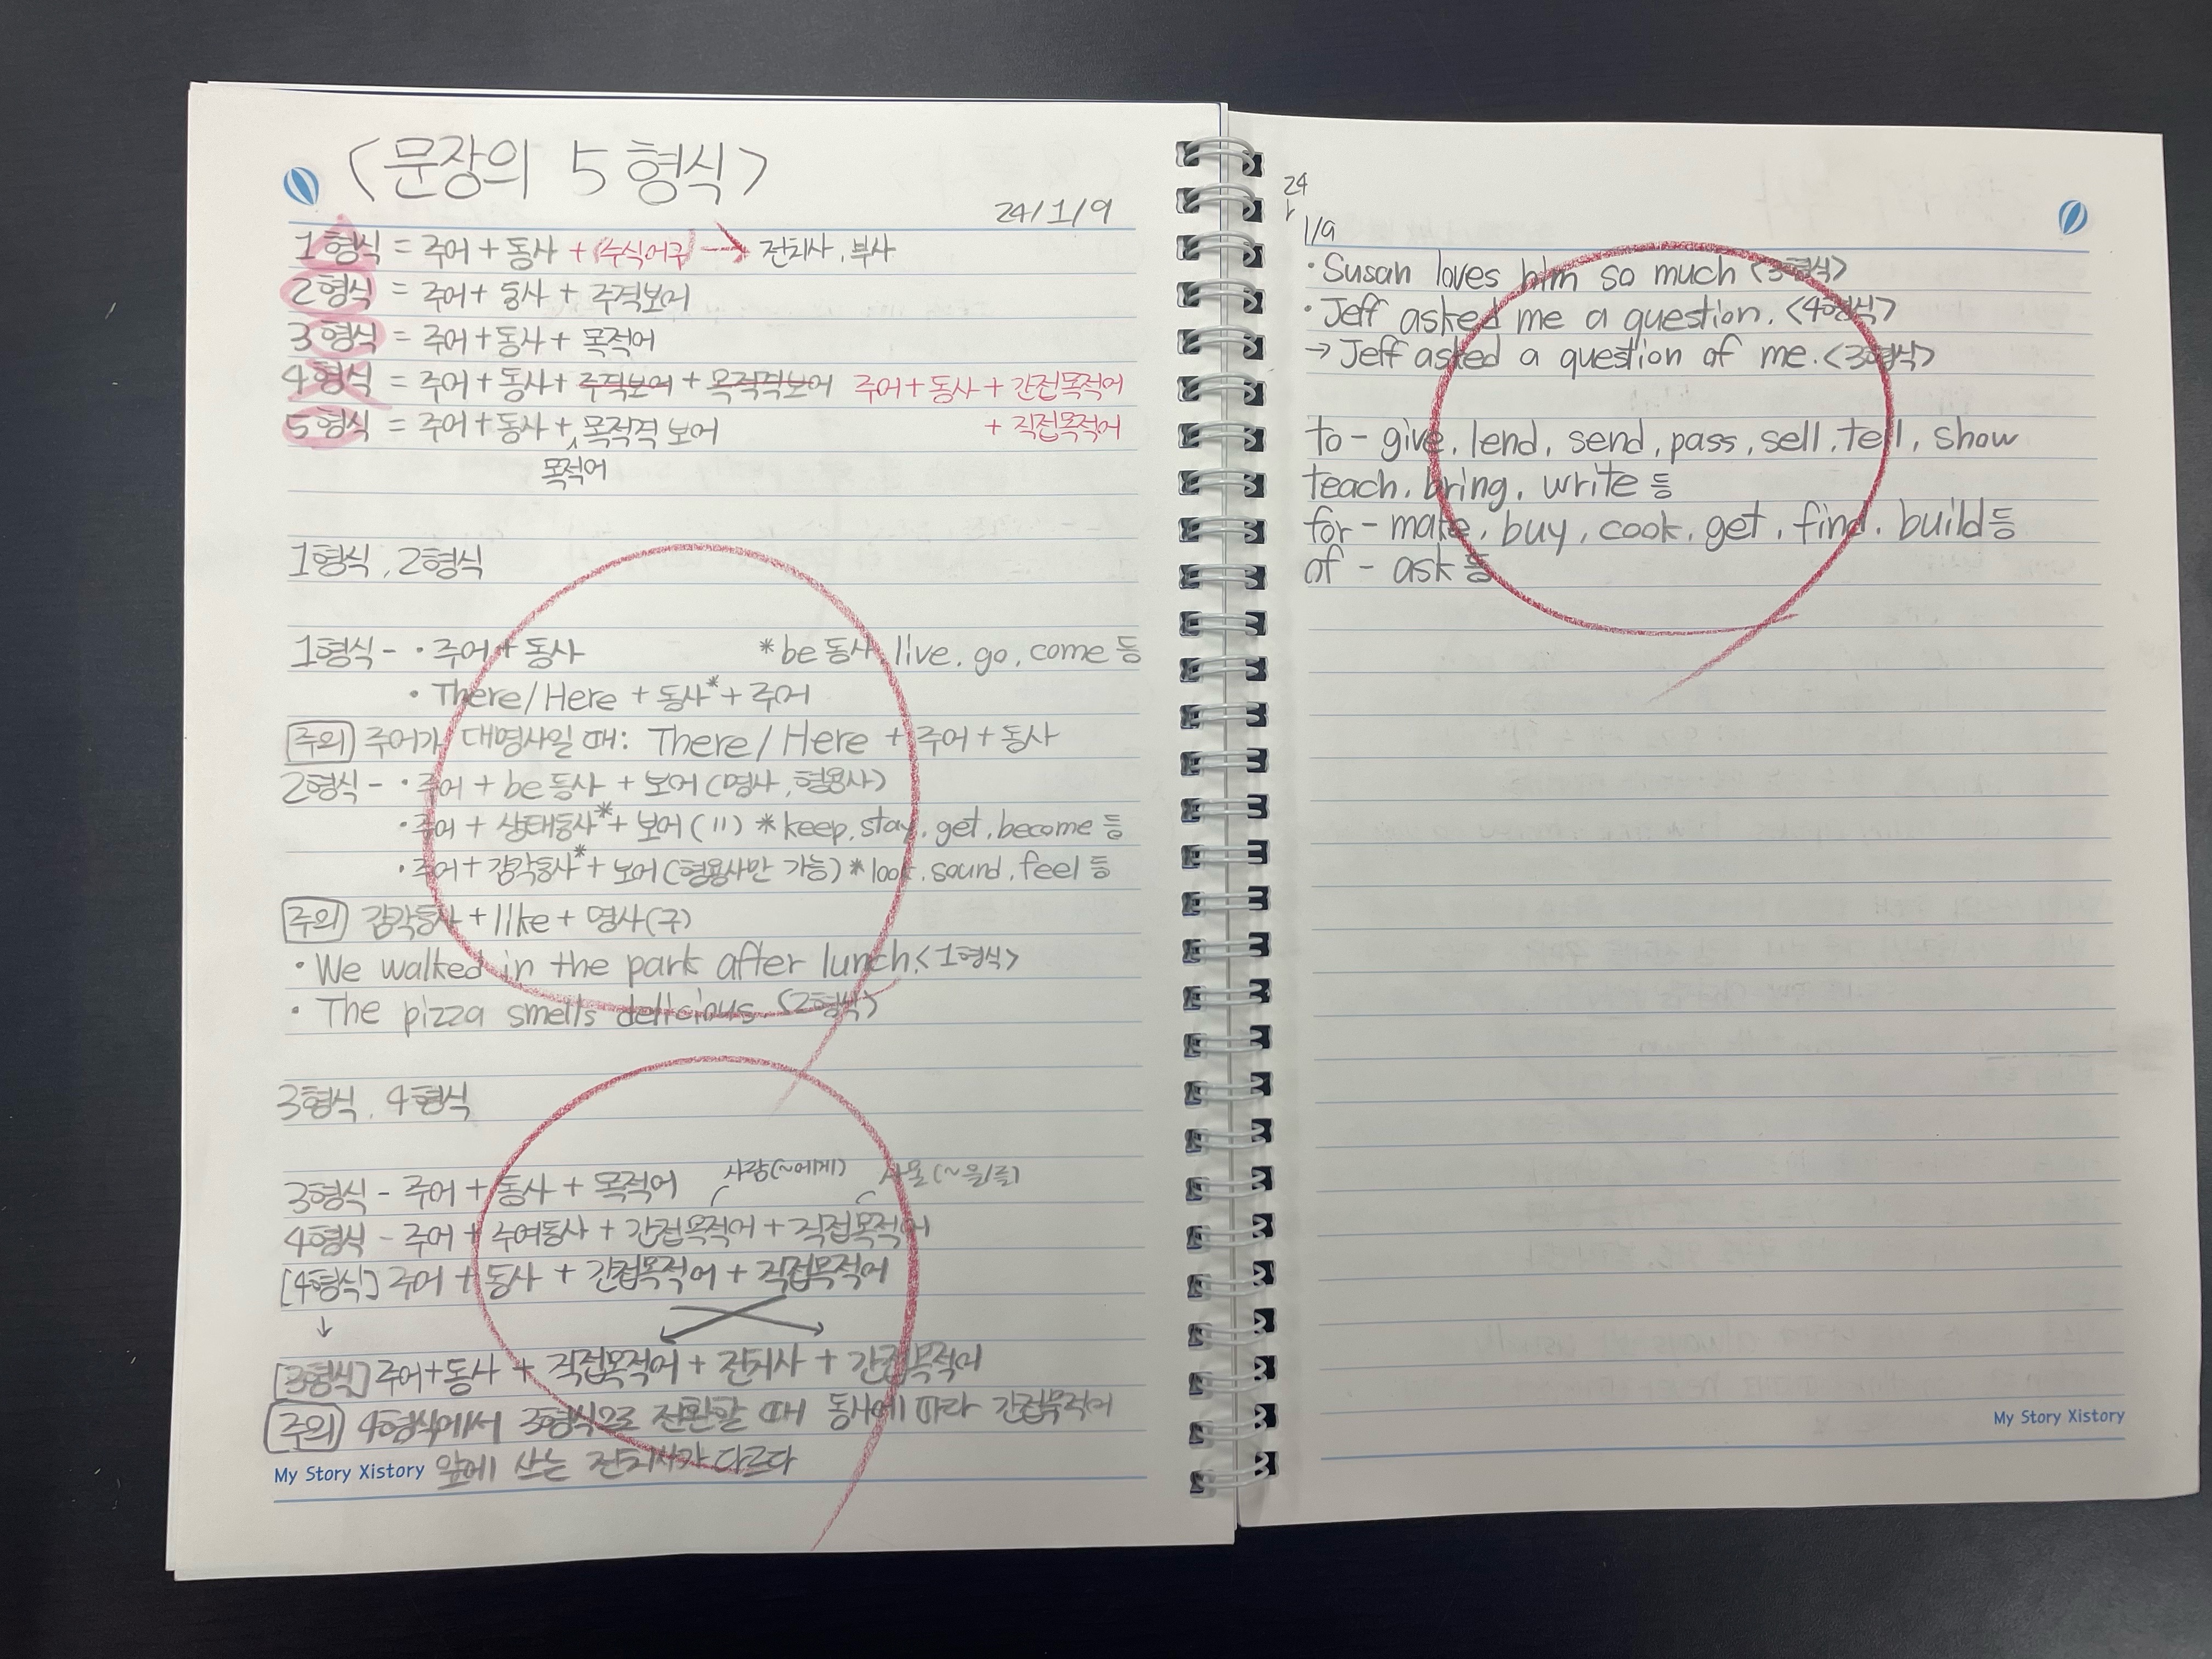 <문장의 5형식>
24/1/9
1형식 = 주어 + 동사 + (수식어구) → 전치사, 부사
2형식 = 주어 + 동사 + 주격보어
3형식 = 주어 + 동사 + 목적어
4형식 = 주어 + 동사 + 주격보어 + 목적격보어 주어 + 동사 + 간접목적어
+ 직접목적어
5형식 = 주어 + 동사 + 목적격 보어
목적어
1형식, 2형식
1형식 - · 주어 + 동사 *be동사 live, go, come 등
· There/Here + 동사* + 주어
주의 주어가 대명사일 때: There/Here + 주어 + 동사
2형식 - · 주어 + be동사 + 보어(명사, 형용사)
· 주어 + 상태동사* + 보어(〃) *keep, stay, get, become 등
· 주어 + 감각동사* + 보어(형용사만 가능) *look, sound, feel 등
주의 감각동사 + like + 명사(구)
· We walked in the park after lunch.<1형식>
· The pizza smells delicious.<2형식>
3형식, 4형식
사람(~에게) 사물(~을/를)
3형식 - 주어 + 동사 + 목적어
4형식 - 주어 + 수여동사 + 간접목적어 + 직접목적어
[4형식] 주어 + 동사 + 간접목적어 + 직접목적어
↓
[3형식] 주어+동사 + 직접목적어 + 전치사 + 간접목적어
주의 4형식에서 3형식으로 전환할 때 동사에 따라 간접목적어
앞에 쓰는 전치사가 다르다
My Story Xistory
24
1/9
· Susan loves him so much <3형식>
· Jeff asked me a question. <4형식>
→ Jeff asked a question of me.<3형식>
to - give, lend, send, pass, sell, tell, show
teach, bring, write 등
for - make, buy, cook, get, find, build 등
of - ask 등
My Story Xistory